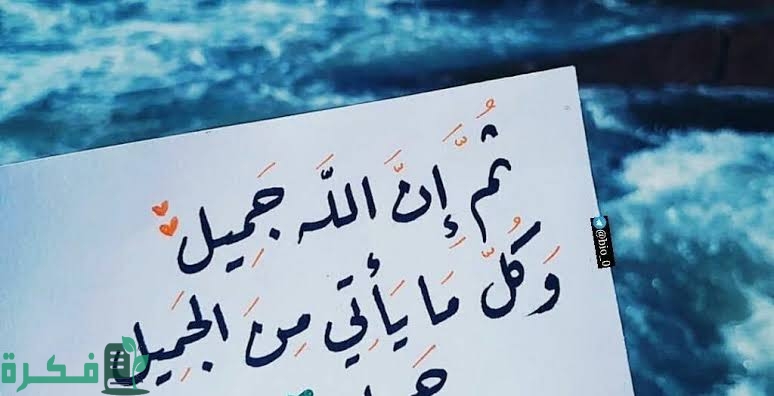 ثُمَّ إِنَّ اللَّه جَمِيل
وَكُلّ مَا يَأْتِي مِنَ الجَمِيل
@bio_0
فكرة